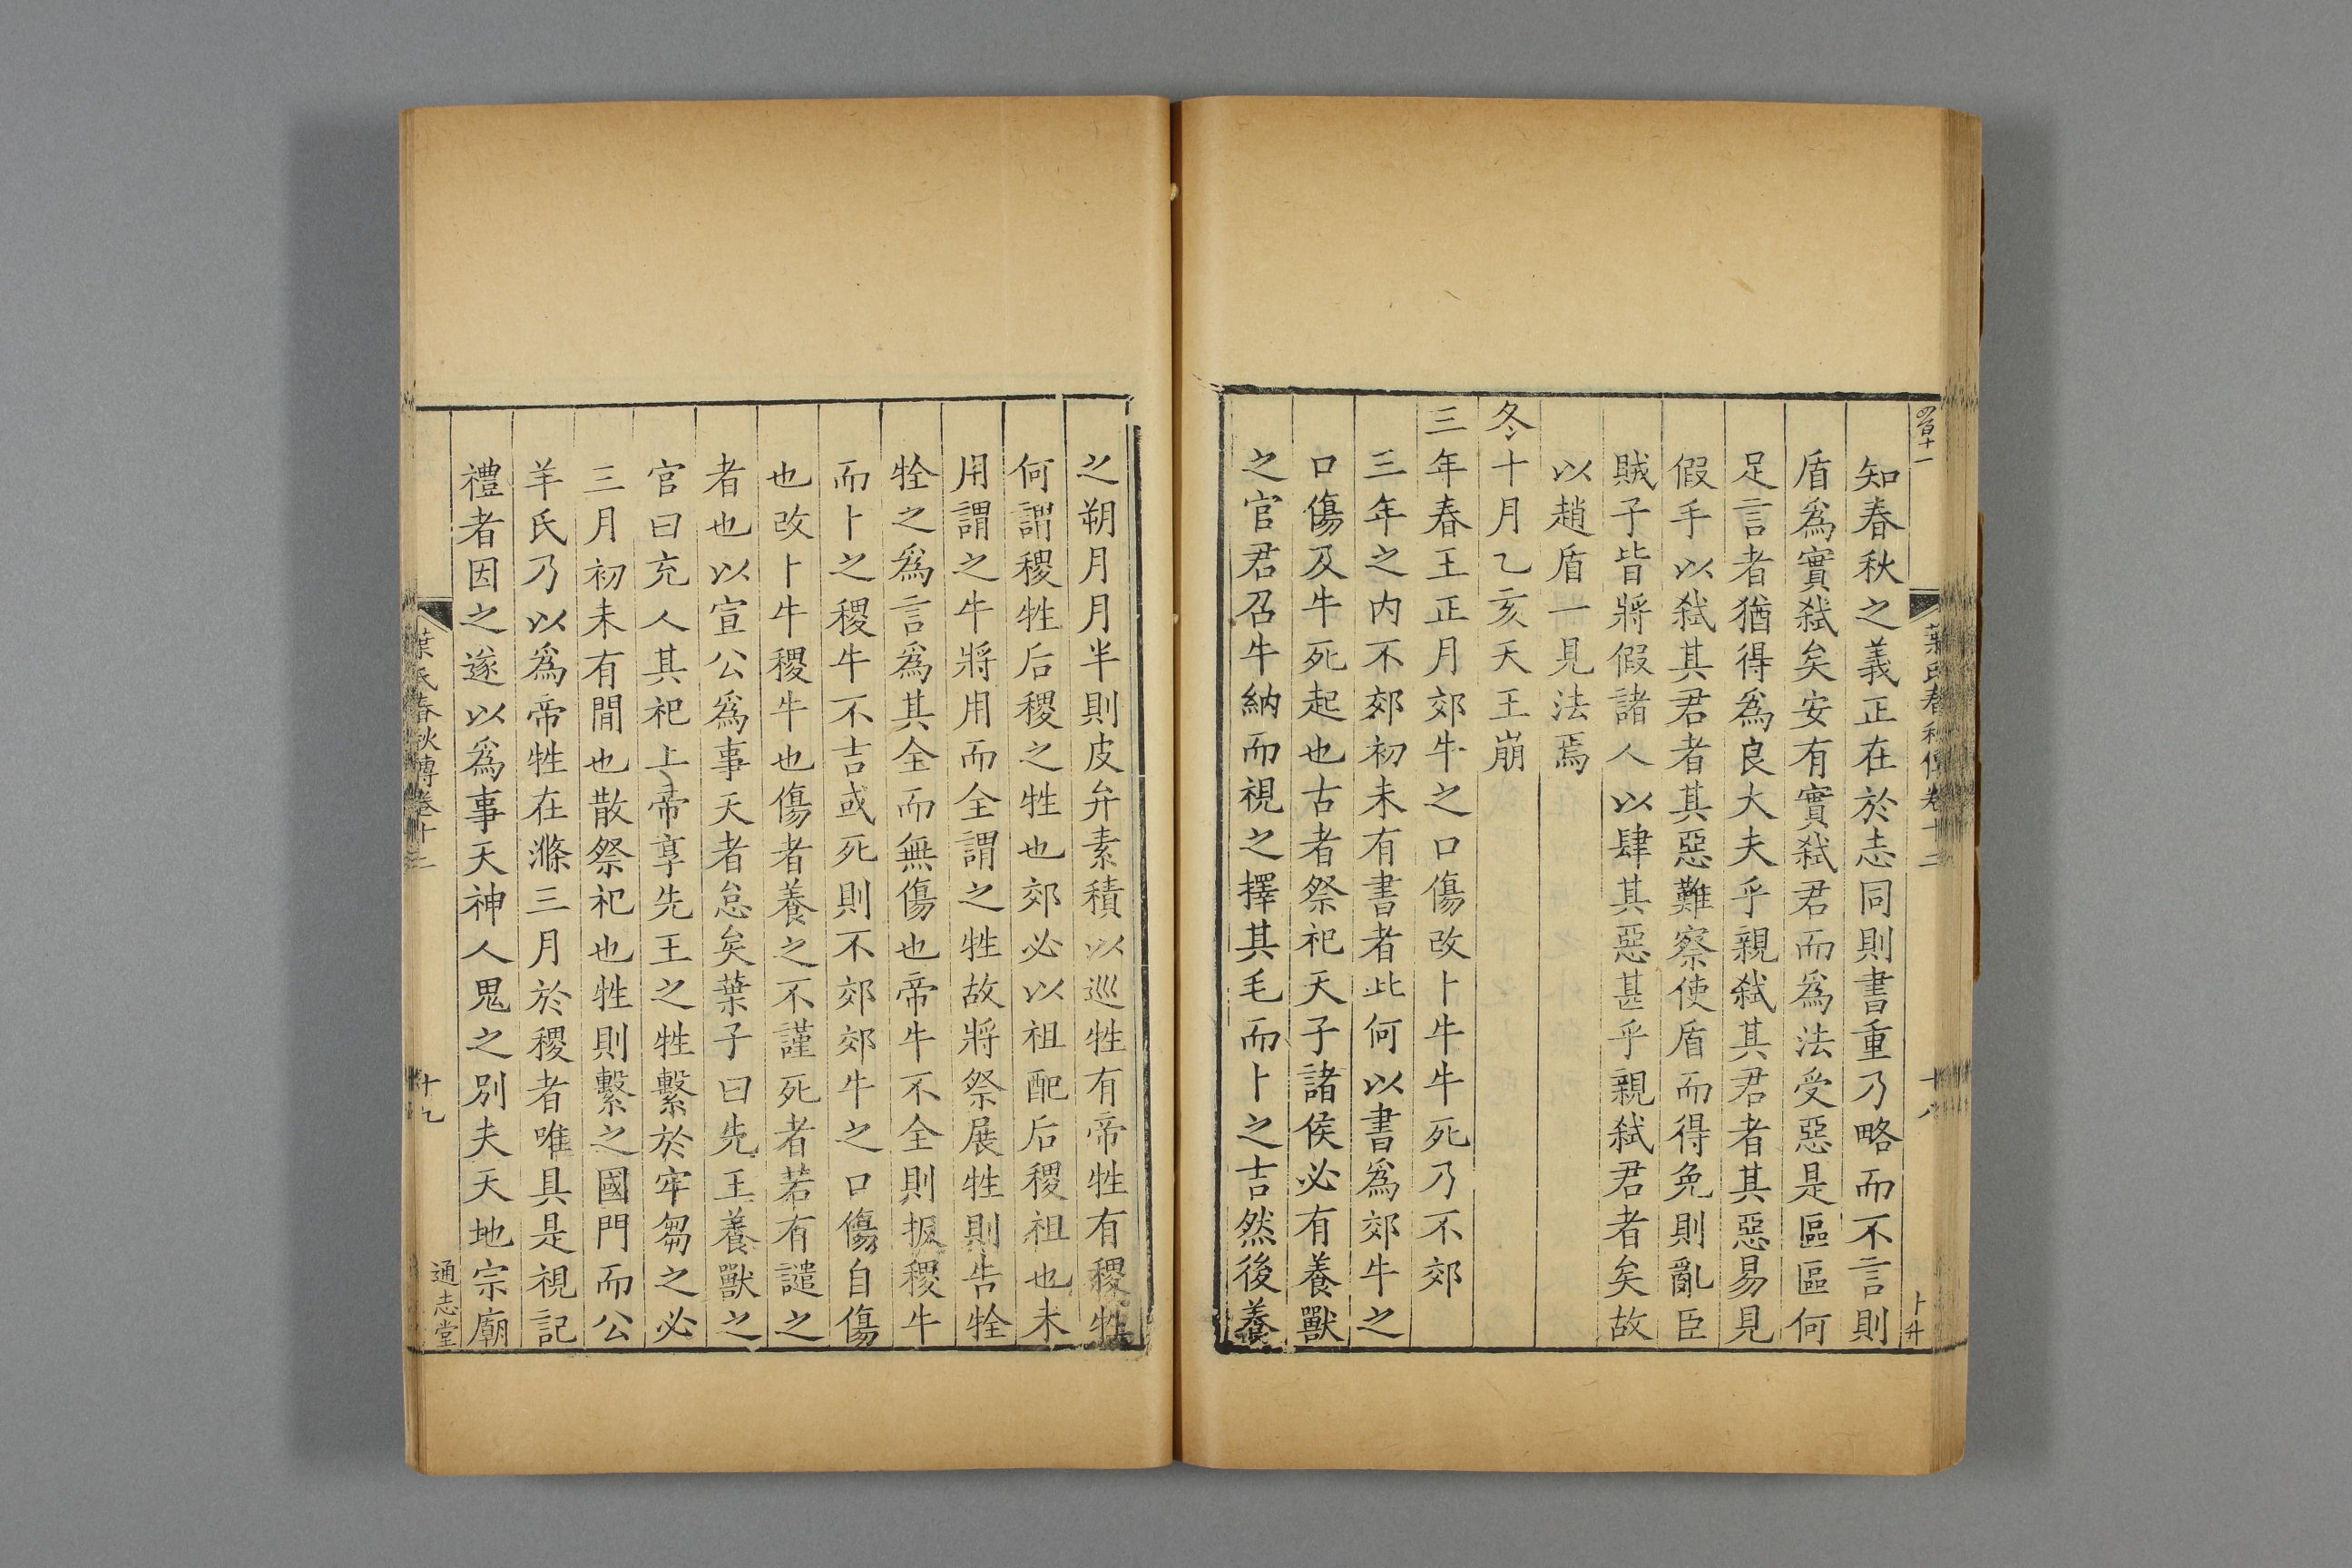 知春秋之義正在於志同則書重乃略而不言則
盾爲實弑矣安有實弑君而爲法受惡是區區何
足言者猶得爲良大夫乎親弑其君者其惡易見
假手以弑其君者其惡難察使盾而得免則亂臣
賊子皆將假諸人以肆其惡甚乎親弑君者矣故
以趙盾一見法焉
冬十月乙亥天王崩
三年春王正月郊牛之口傷改卜牛牛死乃不郊
三年之内不郊初未有書者此何以書爲郊牛之
口傷及牛死起也古者祭祀天子諸侯必有養獸
之官君召牛納而視之擇其毛而卜之吉然後養
之朔月月半則皮弁素積以巡牲有帝牲有稷牲
何謂稷牲后稷之牲也郊必以祖配后稷祖也未
用謂之牛將用而全謂之牲故將祭展牲則告牷
牷之爲言爲其全而無傷也帝牛不全則扳稷牛
而卜之稷牛不吉或死則不郊郊牛之口傷自傷
也改卜牛稷牛也傷者養之不謹死者若有譴之
者也以宣公爲事天者怠矣葉子曰先王養獸之
官曰充人其祀上帝享先王之牲繫於牢芻之必
三月初未有閒也散祭祀也牲則繫之國門而公
羊氏乃以爲帝牲在滌三月於稷者唯具是視記
禮者因之遂以爲事天神人鬼之別夫天地宗廟
葉氏春秋傳卷十二
十九
通志堂
葉氏春秋傳卷十二
十八
卜升